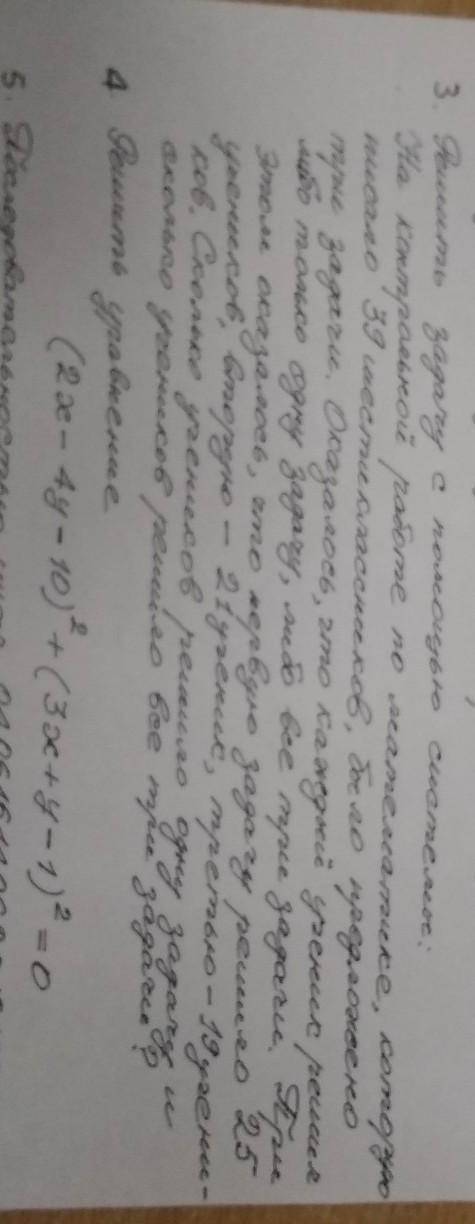 3. Решить задачу с помощью системы:
На контрольной работе по математике, которую
писало 39 шестиклассников, было предложено
три задачи. Оказалось, что каждый ученик решил
либо только одну задачу, либо все три задачи. При
этом оказалось, что первую задачу решило 25
учеников, вторую - 21 ученик, третью - 19 учени-
ков. Сколько учеников решило одну задачу и
сколько учеников решило все три задачи?
4 Решить уравнение
(2x - 4y - 10)² + (3x + y - 1)² = 0
5. Последовательностью